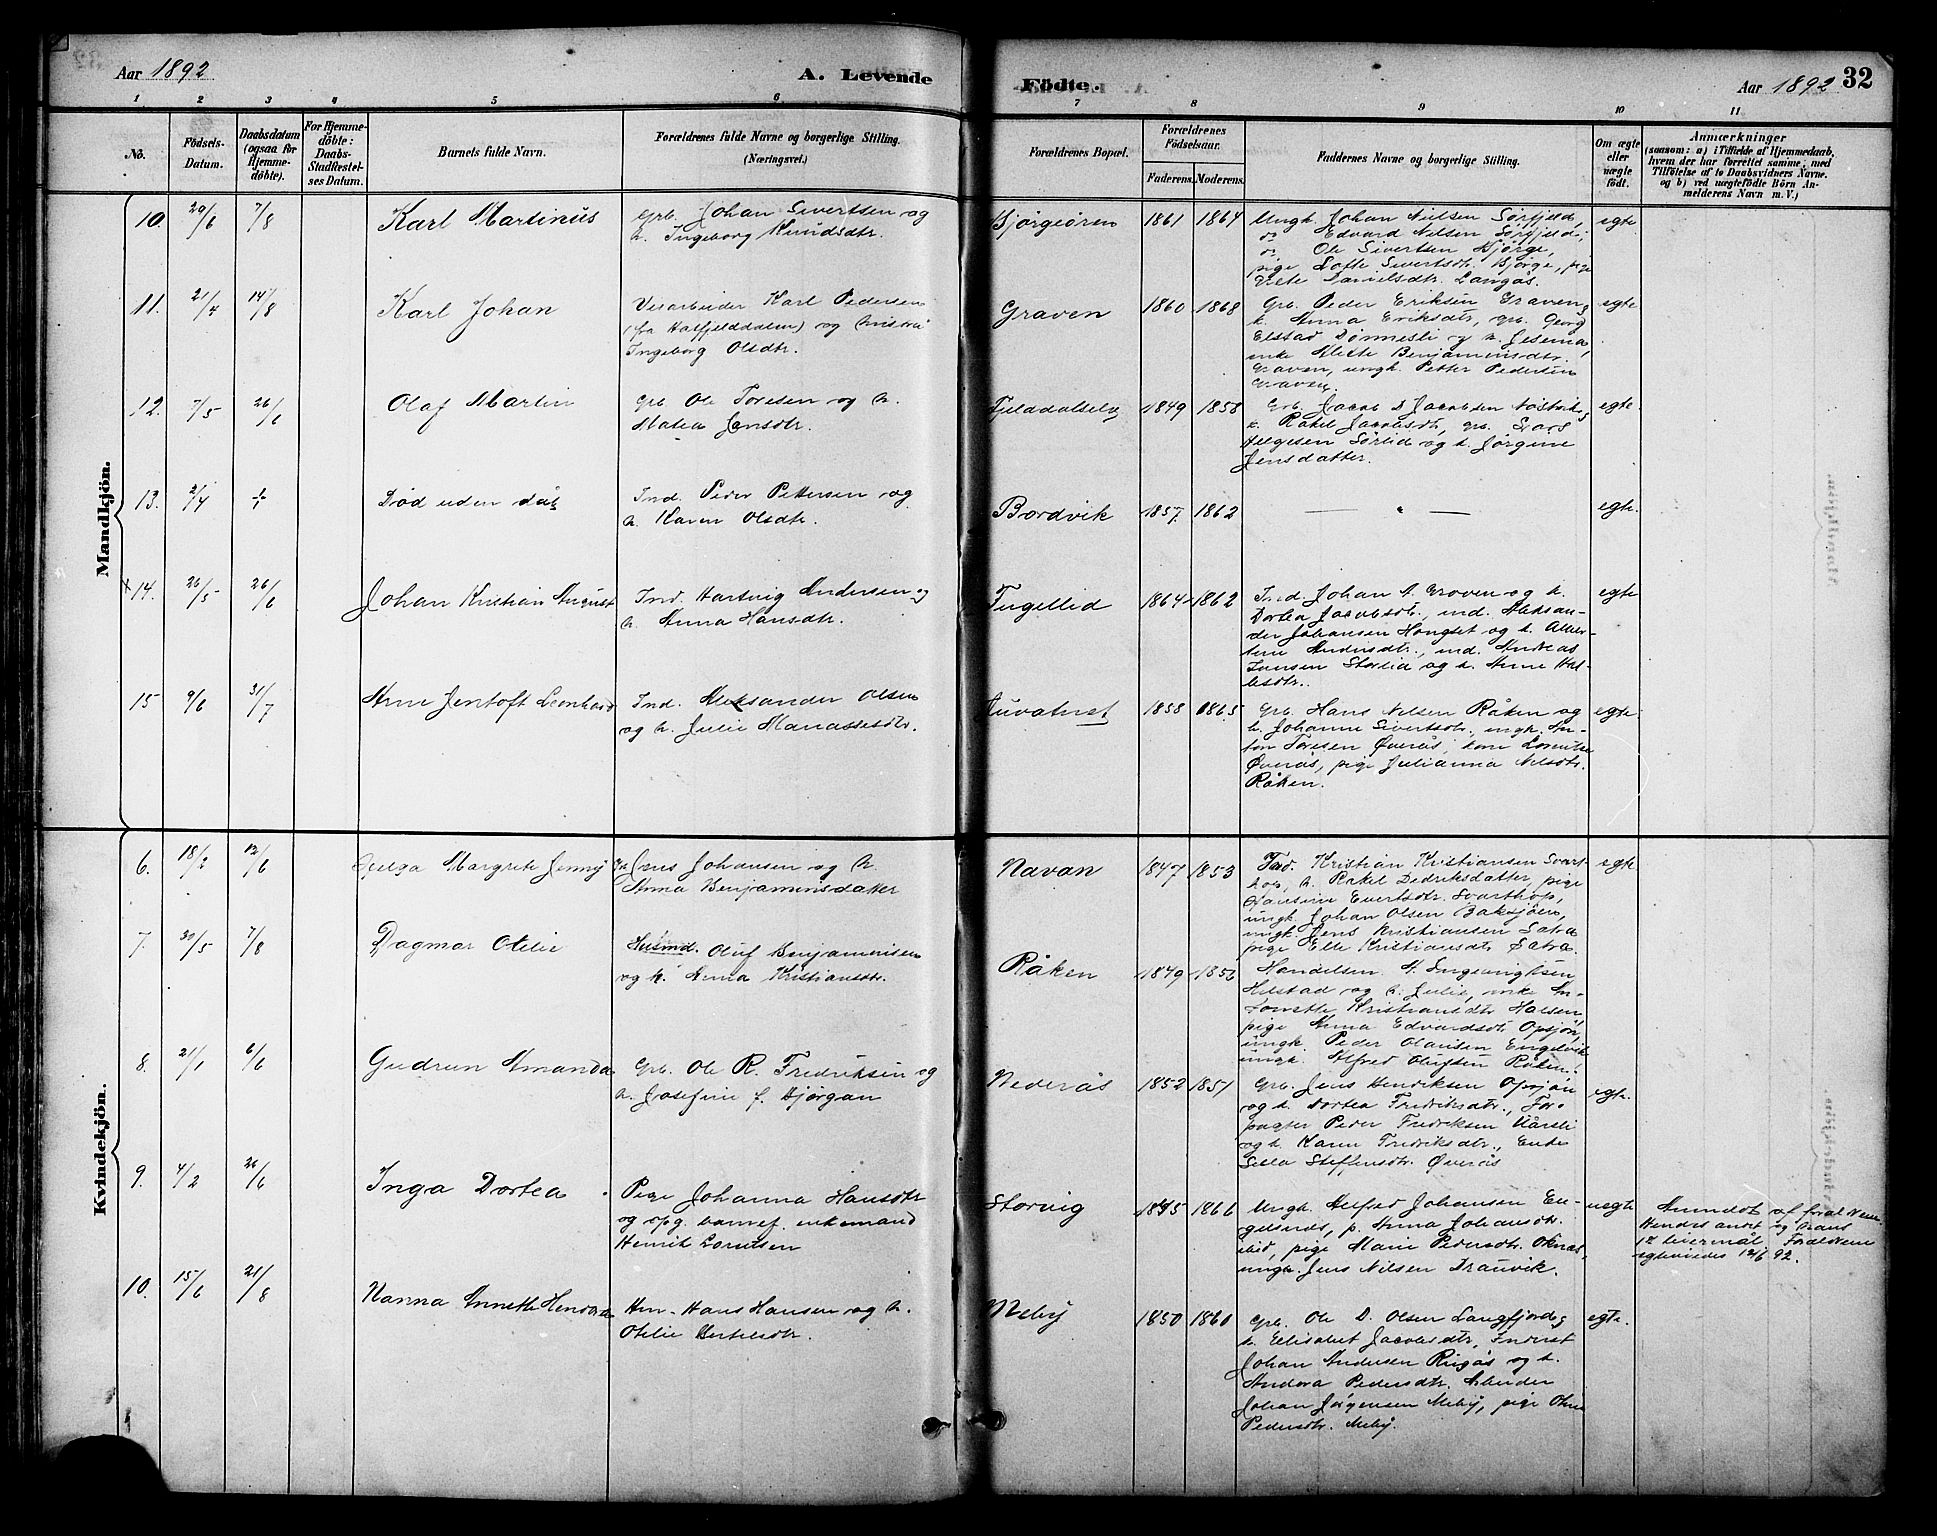 Aar 1892
A. Levende
Födte.
Aar 1892
32
1 2 3 4 5 6 7 8 9 10 11
No.
Födsels-
Datum.
Daabsdatum
(ogsaa for
Hjemme-
döbte).
For Hjemme-
döbte:
Daabs-
Stadfæstel-
ses Datum.
Barnets fulde Navn.
Forældrenes fulde Navne og borgerlige Stilling.
(Næringsvei.)
Forældrenes Bopæl.
Forældrenes
Födselsaar.
Faderens. Moderens.
Faddernes Navne og borgerlige Stilling.
Om ægte
eller
uægte
födt.
Anmærkninger
(saasom: a) i Tilfælde af Hjemmedaab,
hvem der har forrettet samme, med
Tilföielse af to Daabsvidners Navne.
og b) ved uægtefödte Börn An-
melderens Navn m.V.)
Mandkjön.
10. 29/6 7/8 Karl Martinus
Grb. Johan Sivertsen og
h. Ingeborg Knudsdtr.
1861 1864
Ungk. Johan Nielsen Sörfjeld,
do Edvard Nilsen Sörfjeld,
do Ole Sivertsen Bjørge,
pige Lofte Sivertsdtr. Bjørge, pige
Danielsdtr. Langås.
egte
11. 21/4 14/8 Karl Johan
Karl Pedersen
(fra Hatfjelddalen) og hustru
Ingeborg Olsdtr.
Graven 1860 1868
Grb. Peder Eriksen Graven og
h. Anna Eriksdtr, grb. Georg
Elstad Dønnesli og h. Jesema,
enke Benjaminsdtr.
Graven, ungk. Petter Pedersen
Graven.
egte
12. 7/5 26/6 Olaf Martin
Grb. Ole Toresen og h.
Matea Jensdtr.
1849 1858
Grb. Jacob D Jacobsen og
h. Rakel Jacobsdtr, grb. Lars
Helgesen Sørlid og h. Jørgine
Jensdatter.
egte.
13. 2/4 ÷ Død uden dåb
Ind. Peder Pettersen og
h. Karen Olsdtr.
Bordvik 1857. 1862
— „ —
egte.
+14. 26/5 26/6 Johan Kristian August
Ind. Hartvig Andersen og
h. Anna Hansdtr.
Tugellid 1864 1862
Ind. Johan A. Groven og h.
Dortea Jacobsdtr., ind. Aleksan-
der Johansen Hongset og h. Alber-
tine Andersdtr., ind. Andreas
Jensen Storlid og h. Anne
egte
15 9/6 31/7 Arne Jentoft Leonhard
Ind. Aleksander Olsen
og h. Julie Manassesdtr.
1858 1865
Grb. Hans Nilsen Råken og
h. Johanne Sivertsdtr., ungk. An-
ton Toresen Øverås, kone Lorentse
Øverås, pige Julianna Nilsdtr.
Råken.
egte
Kvindekjön.
6. 18/2 12/6 Helga Margrete Jenny
Grb Jens Johansen og h.
Anna Benjaminsdatter
Navan 1847 1853
Ind. Kristian Kristiansen Svart-
hop, h. Rakel Dedriksdatter, pige
Evertsdtr. Svarthop,
ungk. Johan Olsen Baksjöen,
ungk. Jens Kristiansen Sætra
pige Elle Kristiansdtr Sætra.
egte
7. 30/5 7/8 Dagmar Otelie
Husmd. Oluf Benjaminsen
og h. Anna Kristiansdtr.
Råken 1849 1856
Handelsm. A. Ingebrigtsen
Helstad og h. Julie, enke An-
tonette Kristiansdtr Halsen,
pige Anna Edvardsdtr Opsjön,
ungk Peder Olausen Engelvik
ungk. Alfred Olufsen Råken.
8. 21/1 6/6 Gudrun Amanda
Grb. Ole R. Fredriksen og
h. Josefine f. Bjørgan
Nederås 1852 1851
Grb. Jens Henriksen Opsjön
og h. Dortea Fredriksdtr., For-
pagter Peder Fredriksen Vårsli
og h. Karen Fredriksdtr., Enke
Steffensdtr. Øverås
egte.
9. 4/2 26/6 Inga Dortea
Pige Johanna Hansdtr
og opg. barnef. enkemand
Henrik Lorntsen
Storvig 1866
Ungk. Alfred Johansen En-
gelsnes, p. Anna Johansdtr.
pige Marie Pedersdtr. Oknes,
ungk. Jens Nilsen Drauvik.
uegte
Anmeldt af foreldrene
Hendes andet og hans
1ste leiermål. Foreldrene
egteviedes 12/6 92.
10. 15/6 21/8 Nanna Annette
Hans Hansen og h.
Otelie Bertelsdtr.
Meby 1850 1860
Grb. Ole D. Olsen Langfjord og
h. Elisabet Jacobsdtr, Inderst
Johan Andersen Ringås og h.
Andora Pedersdtr. Arbeider
Johan Jørgensen Meby, pige
Pedersdtr. Meby.
egte.